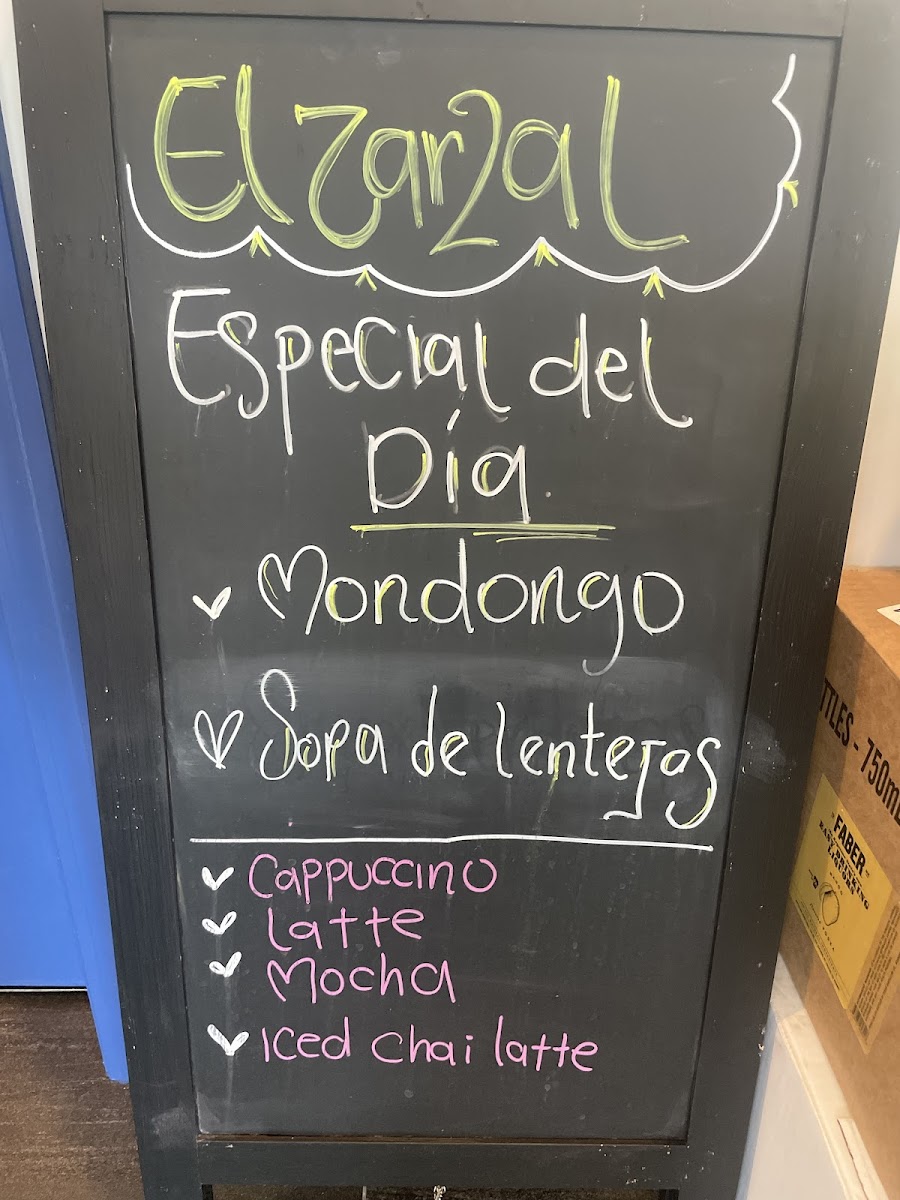 El Zarzal
Especial del
Día
Mondongo
Sopa de lentejas
Cappuccino
Latte
Mocha
Iced Chai latte
TTLES - 750mL
FABER
EASY DRINKING
LIQUORS